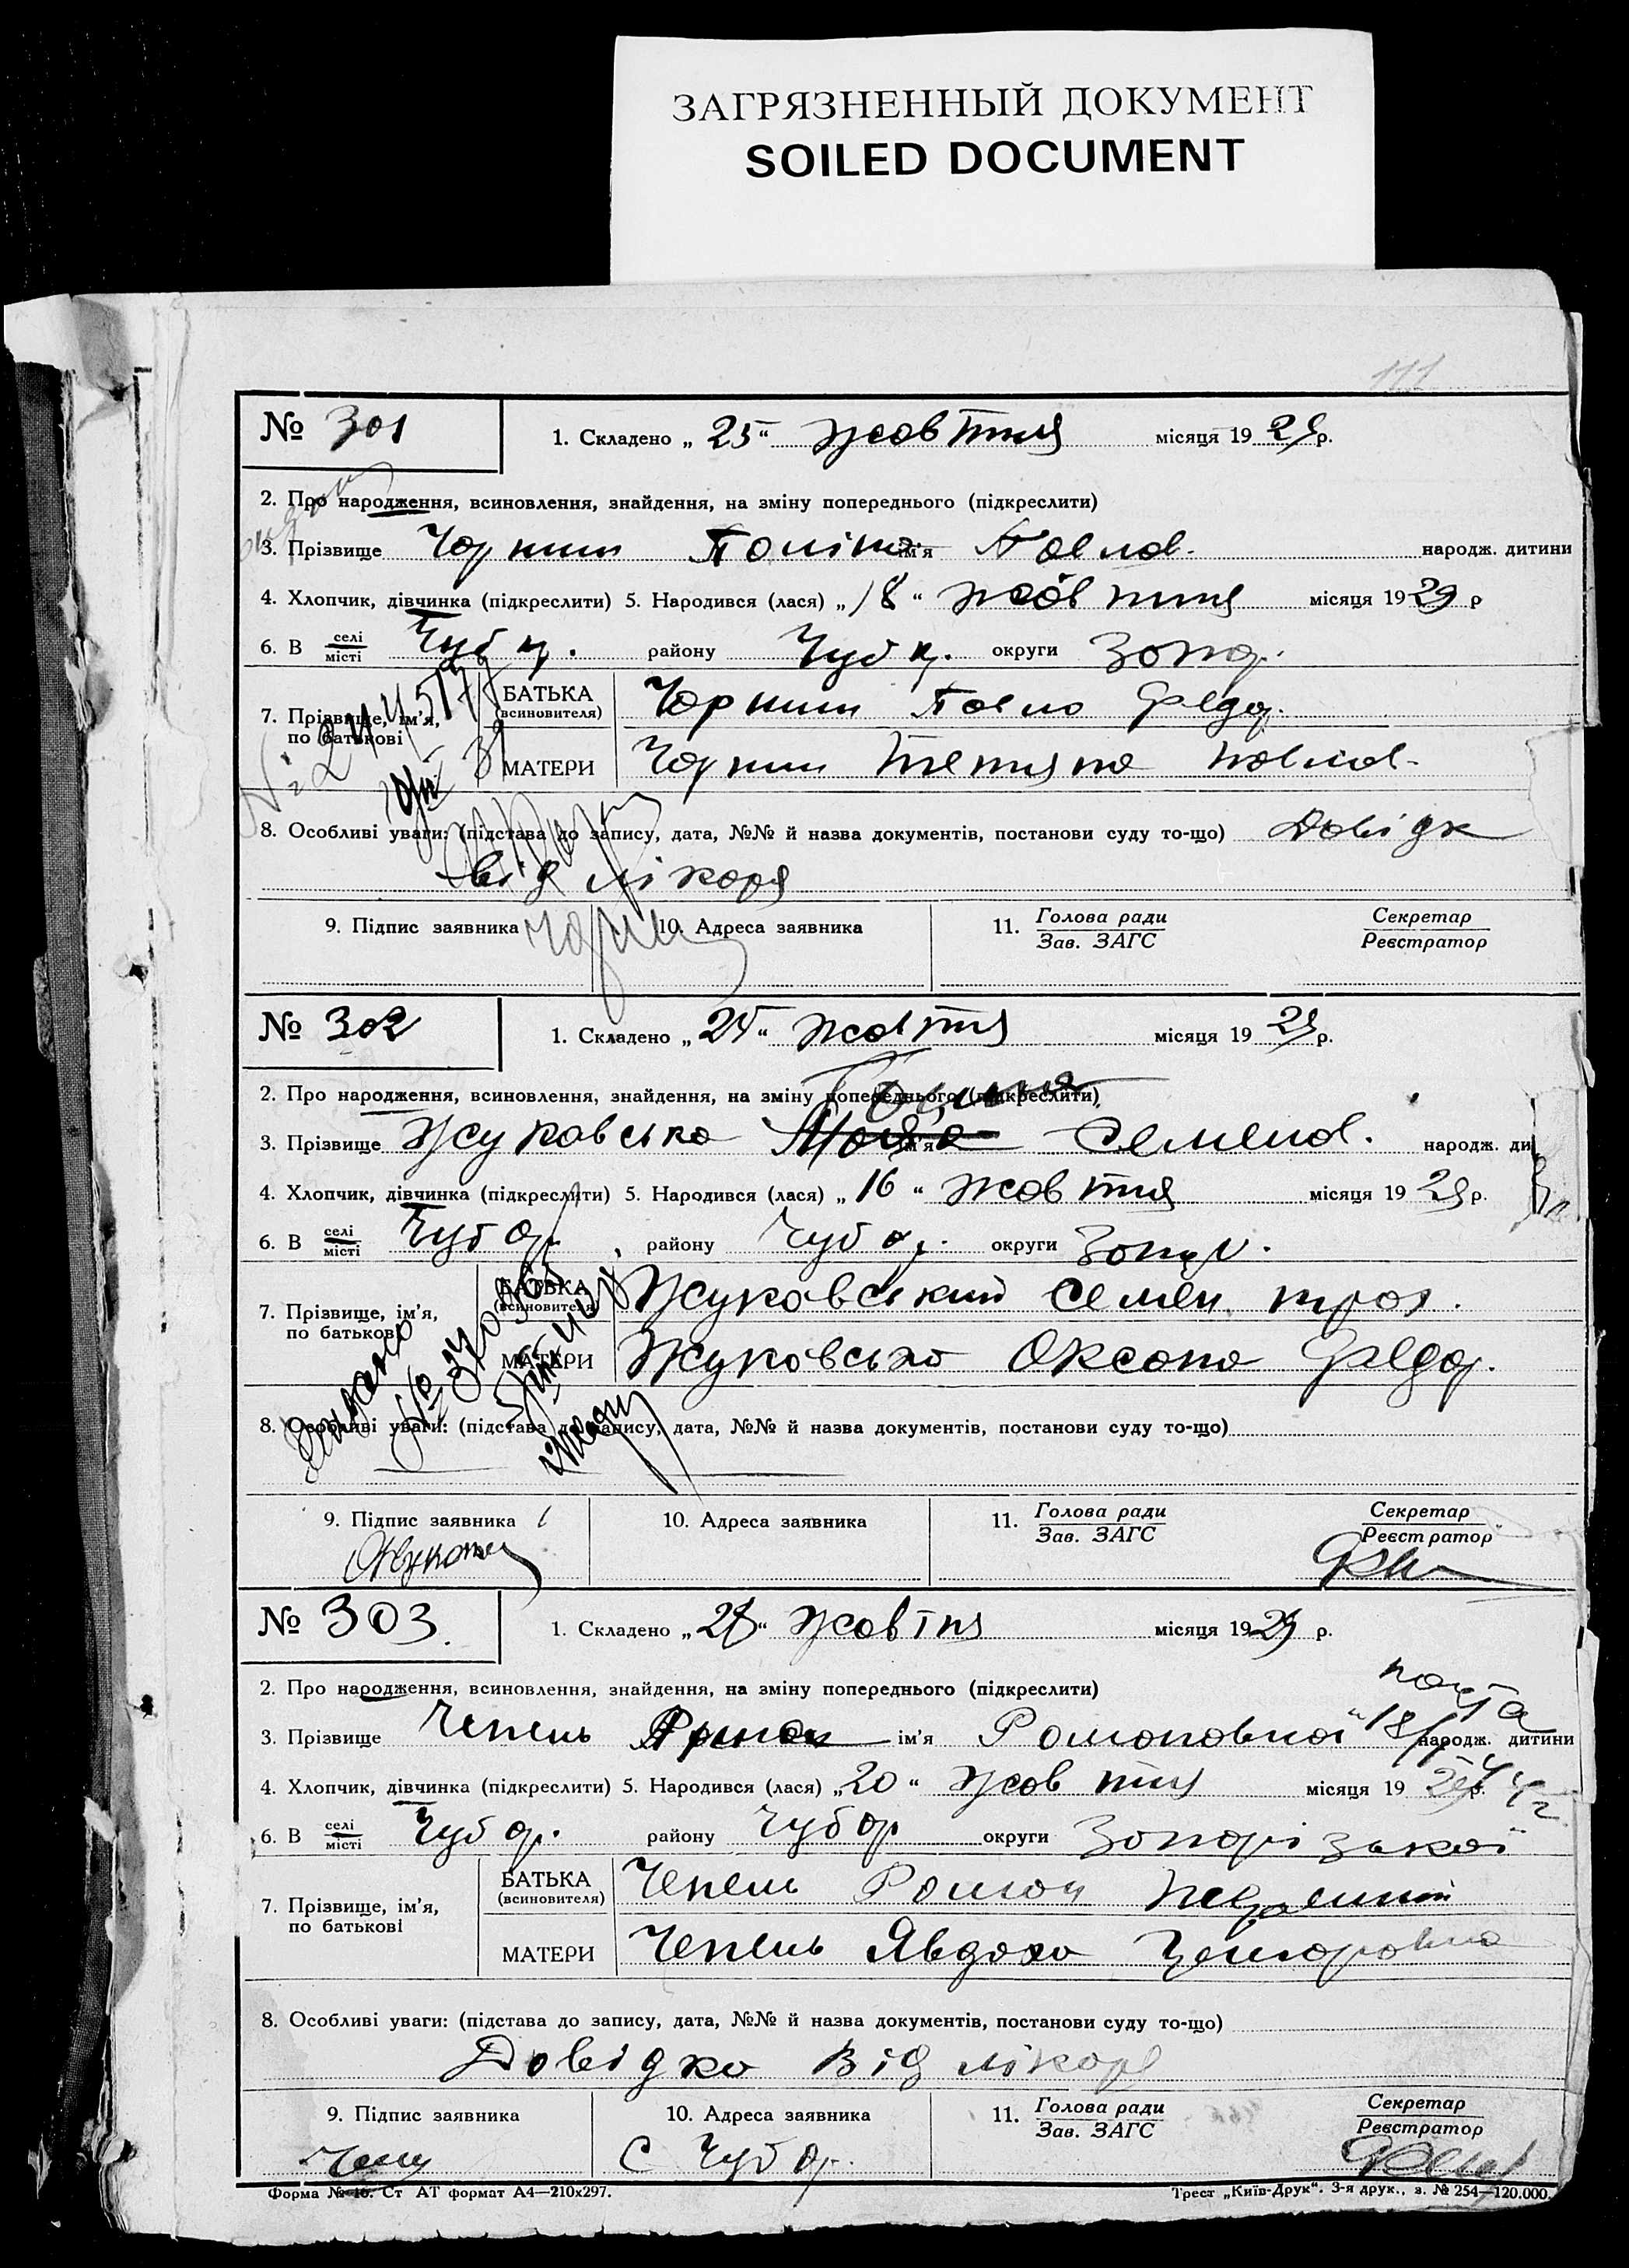 ЗАГРЯЗНЕННЫЙ ДОКУМЕНТ
SOILED DOCUMENT
111
№ 301
1. Складено „ 25 “ жовтня місяця 19 29 р.
2. Про народження, всиновлення, знайдення, на зміну попереднього (підкреслити)
3. Прізвище Чорний ім'я Павлов. народж. дитини
4. Хлопчик, дівчинка (підкреслити) 5. Народився (лася) „ 18 “ жовтня місяця 19 29 р
6. В селі/місті Чуб р. району Чуб р. округи Запор.
7. Прізвище, ім'я, по батькові
БАТЬКА (всиновителя) Чорний Павло Федор.
МАТЕРИ Чорний Тетяна Павлов.
8. Особливі уваги: (підстава до запису, дата, №№ й назва документів, постанови суду то-що) Довідк
від лікаря
9. Підпис заявника
10. Адреса заявника
11. Голова ради
Зав. ЗАГС
Секретар
Реєстратор
№ 302
1. Складено „ 25 “ жовтня місяця 19 29 р.
2. Про народження, всиновлення, знайдення, на зміну попереднього (підкреслити)
3. Прізвище Жуковська ім'я Семенов. народж. ди
4. Хлопчик, дівчинка (підкреслити) 5. Народився (лася) „ 16 “ жовтня місяця 19 29 р.
6. В селі/місті Чуб р. району Чуб р. округи Запор.
7. Прізвище, ім'я, по батькові
БАТЬКА (всиновителя) Жуковський Семен Троф.
МАТЕРИ Жуковська Оксана Федор.
8. Особливі уваги: (підстава до запису, дата, №№ й назва документів, постанови суду то-що)
9. Підпис заявника
10. Адреса заявника
11. Голова ради
Зав. ЗАГС
Секретар
Реєстратор
№ 303.
1. Складено „ 28 “ жовтня місяця 19 29 р.
2. Про народження, всиновлення, знайдення, на зміну попереднього (підкреслити)
3. Прізвище Чепель ім'я Романовна народж. дитини
4. Хлопчик, дівчинка (підкреслити) 5. Народився (лася) „ 20 “ жовтня місяця 19 29 р.
6. В селі/місті Чуб р. району Чуб р округи Запорізької
7. Прізвище, ім'я, по батькові
БАТЬКА (всиновителя) Чепель Роман
МАТЕРИ Чепель Явдоха
8. Особливі уваги: (підстава до запису, дата, №№ й назва документів, постанови суду то-що)
Довідка від лікаря
9. Підпис заявника
10. Адреса заявника
С Чуб р.
11. Голова ради
Зав. ЗАГС
Секретар
Реєстратор
Форма № 16. Ст АТ формат А4—210х297.
Трест „Київ-Друк“. 3-я друк., з. № 254—120.000.